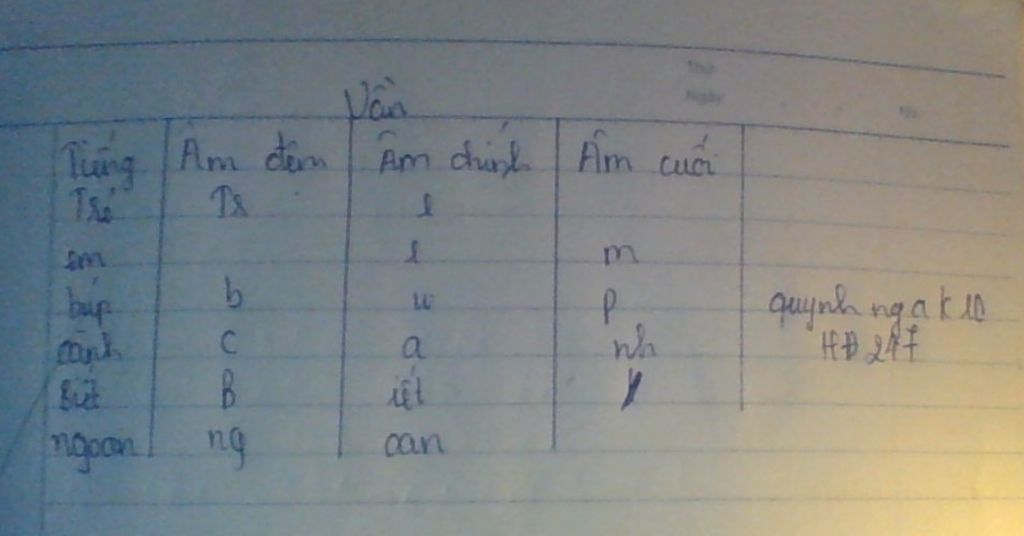 Thứ
Ngày
Vần
Tiếng Âm đệm Âm chính Âm cuối
Trẻ Tr e
em e m
búp b u p
cành c a nh
Biết B iết
ngoan ng oan
quynh nga k10
HĐ 247